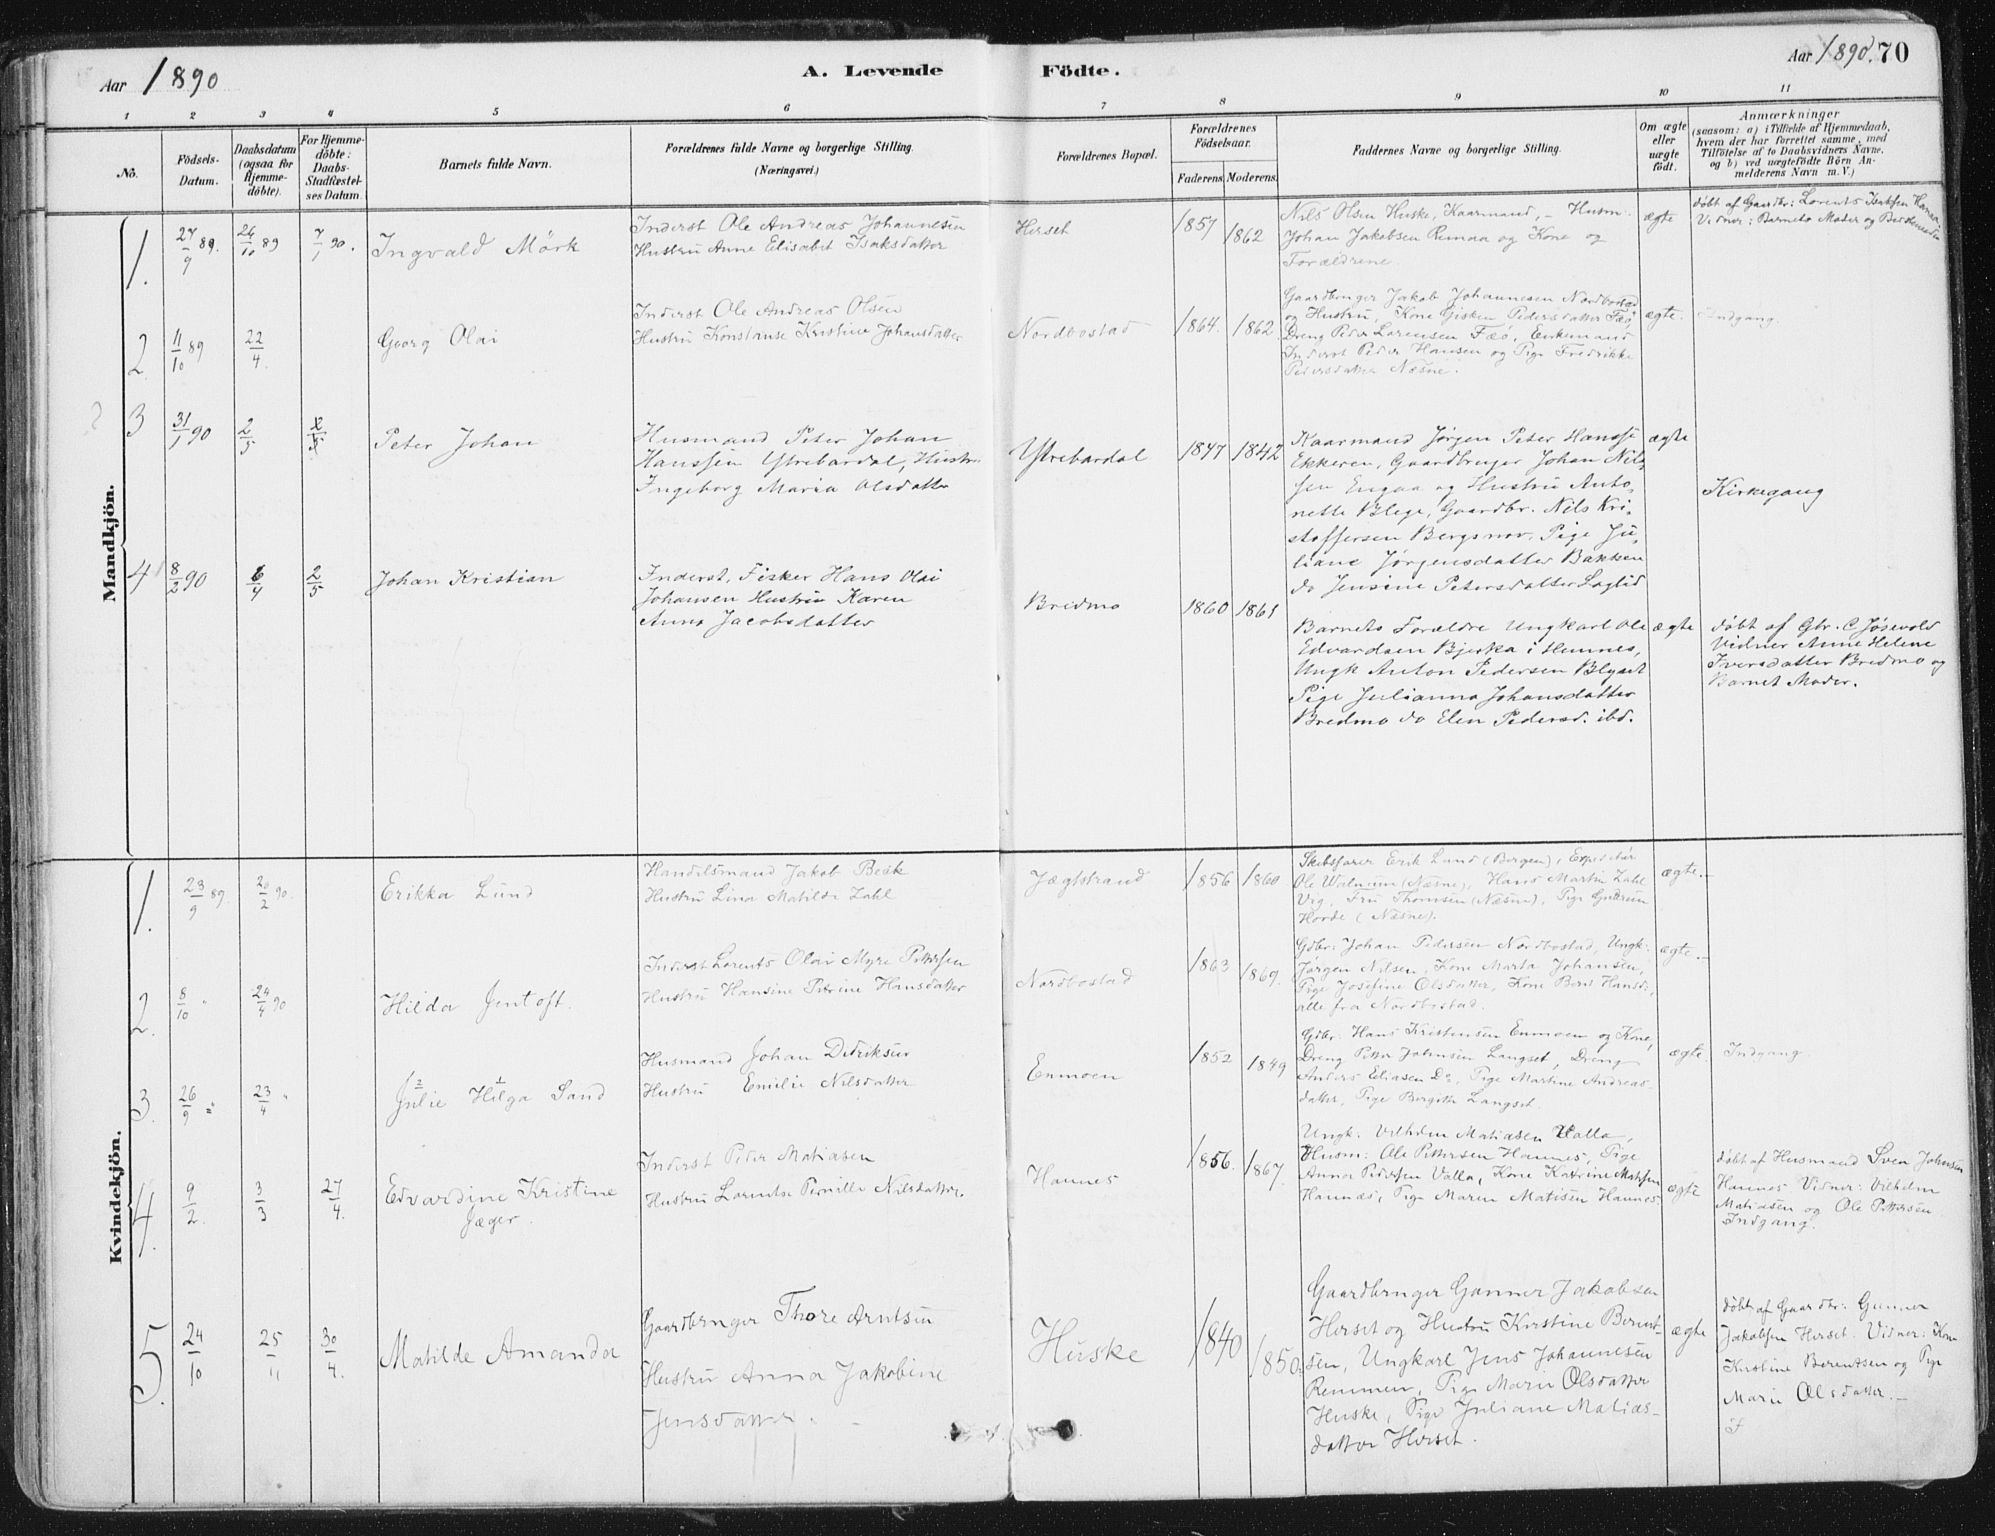 Aar 1890
A. Levende Födte.
Aar 1890. 70
1 2 3 4 5 6 7 8 9 10 11
No.
Födsels-Datum.
Daabsdatum (ogsaa for Hjemme-döbte).
For Hjemme-döbte: Daabs-Stadfæstel-ses Datum.
Barnets fulde Navn.
Forældrenes fulde Navne og borgerlige Stilling.
(Næringsvei.)
Forældrenes Bopæl.
Forældrenes Födselsaar.
Faderens. Moderens.
Faddernes Navne og borgerlige Stilling.
Om ægte eller uægte födt.
Anmærkninger
(saasom: a) i Tilfælde af Hjemmedaab,
hvem der har forrettet samme, med
Tilföielse af to Daabsvidners Navne,
og b) ved uægtefödte Börn An-
melderens Navn m. V.)
Mandkjön.
1.
27/9 89.
24/10 89
7/1 90.
Ingvald Mörk
Inderst Ole Andreas Johannesen
Hustru Anne Elisabet Isaksdatter
Hirset
1857
1862
Nils Olsen Huske, Kaarmand, - Husm.
Johan Jakobsen Remaa og Kone og
Forældrene.
ægte
døbt af Gaardbr: Lorents Isaksen
Vidner: Barnets Moder og
2.
11/10 89
22/4.
Georg Olai
Inderst Ole Andreas Olsen
Hustru Konstanse Kristine Johansdatter
Nordbostad
1864.
1862.
Gaardbruger Jakob Johannesen Nordbostad
og Hustru, Kone Gisken Pedersdatter Fæö,
Dreng Peder Lorensen Fæö, Enkemand
Inderst Peder Hansen og Pige Fredrikke
Pedersdatter Næsne.
ægte.
Indgang.
3
31/1 90
2/5
Peter Johan
Husmand Peter Johan
Hanssen Ytrebardal, Hustru
Ingeborg Maria Olsdatter
Ytrebardal
1847
1842
Kaarmand Jørgen Peter Hansse
Ekkeren, Gaardbruger Johan Nils
sen Engaa og Hustru Anto,
nette Blege, Gaardbr. Nils Kri,
stoffersen Bergsnov, Pige Ju,
liane Jørgensdatter Bakken
do Jensine Petersdatter
ægte
Kirkegang
4
8/2 90
6/4
2/5
Johan Kristian
Inderst, Fisker Hans Olai
Johansen Hustru Karen
Anna Jacobsdatter
Bredmo
1860
1861
Barnets Forældre Ungkarl Ole
Edvardsen Bjerka i Hemnes,
Ungk Anton Pedersen
Pige Julianna Johansdatter
Bredmo do Elen Pedersd. ibd.
ægte
døbt af Gbr. C Jøsevold
Vidner Anne Helene
Iversdatter Bredmo og
Barnet Moder.
Kvindekjön.
1.
23/9 89.
20/2 90.
Erikka Lund
Handelsmand Jakob Beck
Hustru Lina Matilde Zahl
Jægtstrand
1856
1860
Skibsfører Erik Lund (Bergen), Expeditör
Ole Walnum (Næsne), Hans Martin Zahl
Vig, Fru Thomsen (Næsne), Pige Gudrun
Horde (Næsne).
ægte.-
2.
8/10 "
24/4 90
Hilda Jentoft.
Inderst Lorents Olai Myre Pettersen
Hustru Hansine Petrine Hansdatter
Nordbostad
1863
1869.
Gdbr: Johan Pedersen Nordbostad, Ungk:
Jørgen Nilsen, Kone Marta Johansen,
Pige Josefine Olsdatter, Kone Berit Hansd:,
alle fra Nordbostad.
ægte.-
3.
26/9 "
23/4 "
Julie Hilga Sand
Husmand Johan Didriksen
Hustru Emilie Nilsdatter
Enmoen
1852
1849
Gdbr: Hans Kristensen Enmoen og Kone,
Dreng Petter Johnsen Langset, Dreng
Anders Eliasen Do, Pige Martine Andreas-
datter, Pige Bergitte Langset.
ægte.
Indgang
4.
9/2.
3/3
27/4.
Edvardine Kristine
Jæger.
Inderst Peder Matiasen
Hustru Lorentse Pernille Nilsdatter.
Hannes
1856.
1867.
Ungk: Vilhelm Matiasen Valla,
Husm: Ole Pettersen Hannes, Pige
Anna Pedersen Valla, Kone Katrine Matisen
Hannæs, Pige Maren Matisen Hannes.
ægte
døbt af Husmand Sven Johnsen
Hannes Vidner: Vilhelm
Matiasen og Ole Pettersen
Indgang.
5.
24/10
25/11
30/4.
Matilde Amanda
Gaardbruger Thore Arntsen
Hustru Anna Jakobine
Jensdatter.
Huske
1840
1850
Gaardbruger Gunner Jakobsen
Herset og Hustru Kristine Bernt-
sen, Ungkarl Jens Johannesen
Remmen, Pige Maren Olsdatter
Huske, Pige Juliane Matias-
datter Herset.
ægte
døbt af Gaardbr: Gunner
Jakobsen Herset. Vidner: Kone
Kristine Berentsen og Pige
Maren Olsdatter.-